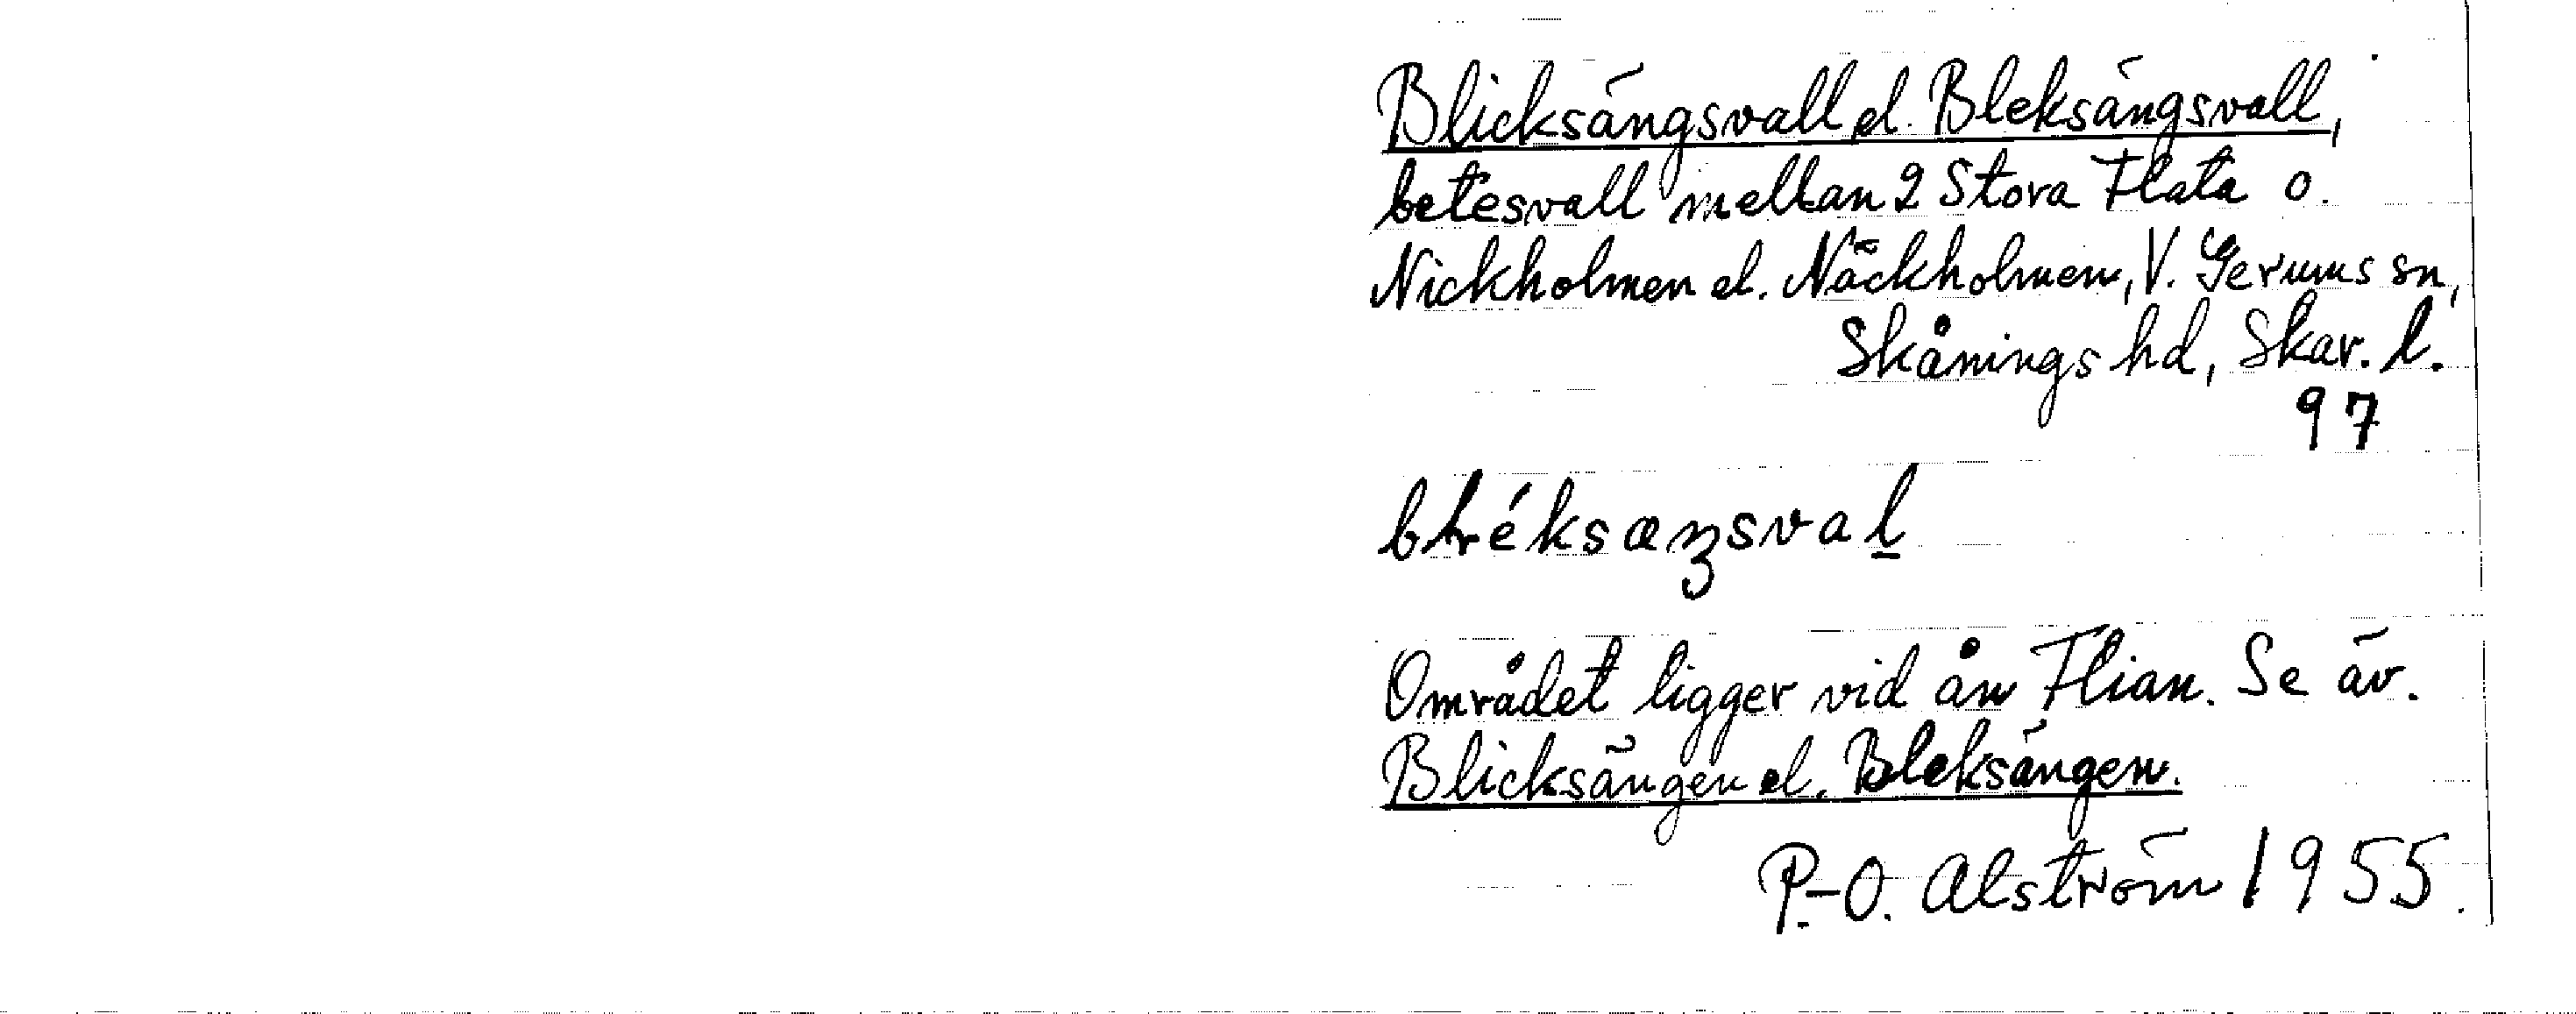 Blicksängsvall el. Bleksängsvall,
betesvall mellan 2 Stora Flata o.
Nickholmen el. Näckholmen, V. Gerums sn,
Skånings hd, Skar. l.
97
bléksæŋsvaḻ
Området ligger vid ån Flian. Se äv.
Blicksängen el. Bleksängen.
P.-O. Alström 1955.